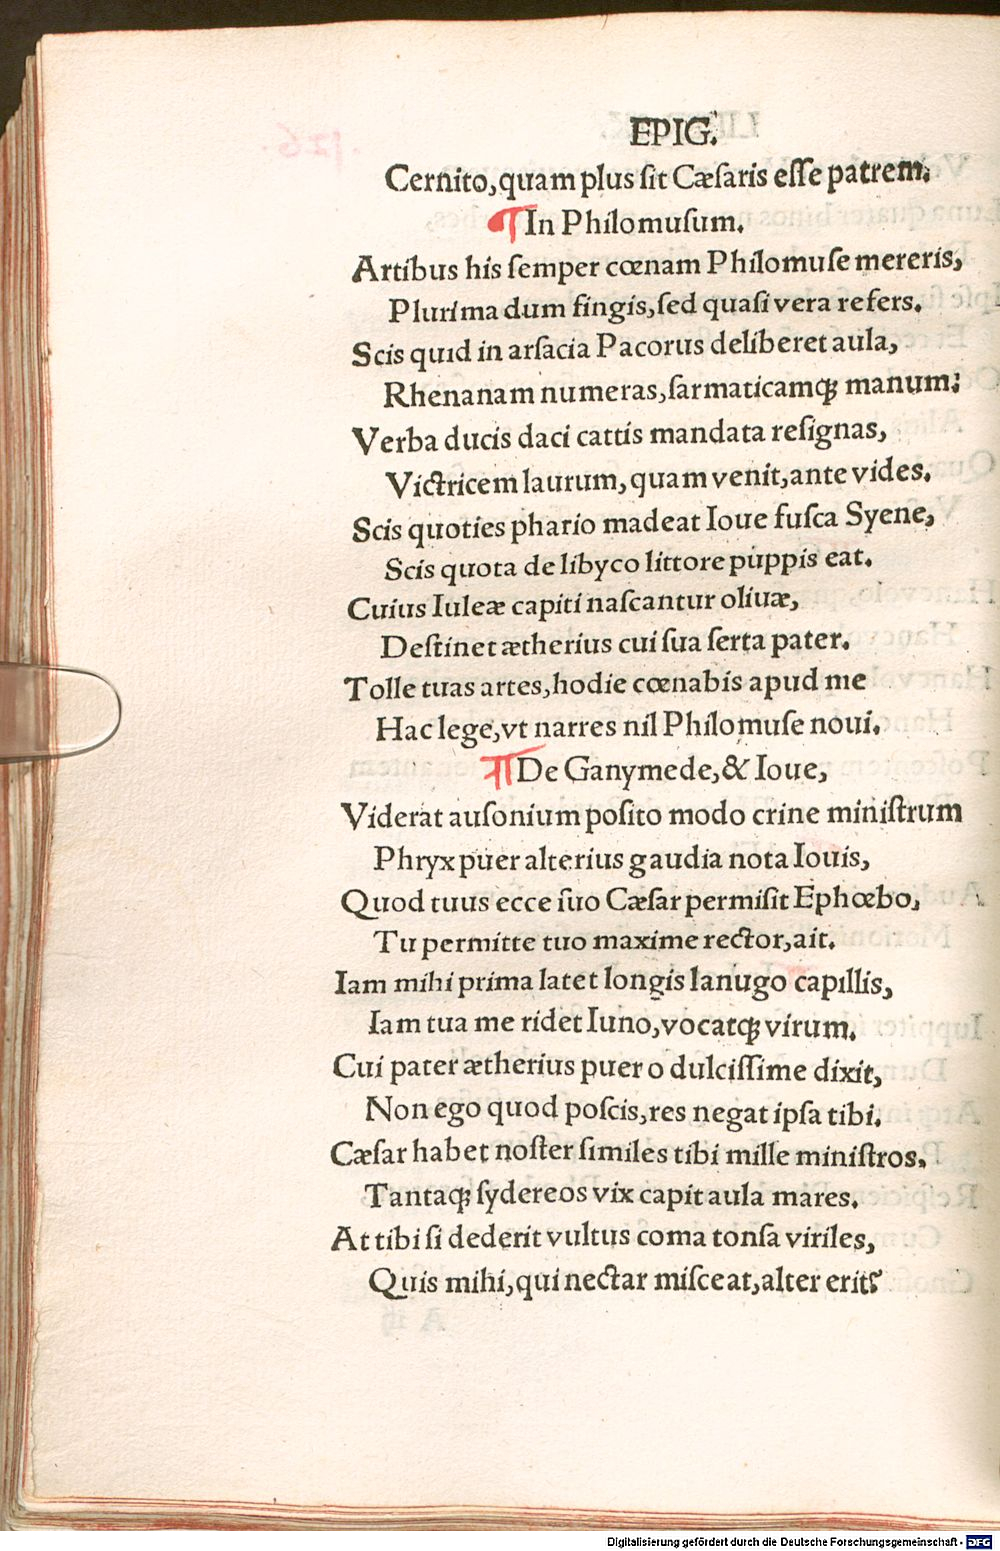 EPIG.
Cernito,quam plus ſit Cæſaris eſſe patrem.
¶In Philomuſum.
Artibus his ſemper cœnam Philomuſe mereris,
Plurima dum fingis,ſed quaſi vera refers.
Scis quid in arſacia Pacorus deliberet aula,
Rhenanam numeras,ſarmaticamꝗ manum:
Verba ducis daci cattis mandata reſignas,
Victricem laurum,quam venit,ante vides.
Scis quoties phario madeat Ioue fuſca Syene,
Scis quota de libyco littore puppis eat.
Cuius Iuleæ capiti naſcantur oliuæ,
Deſtinet ætherius cui ſua ſerta pater.
Tolle tuas artes,hodie cœnabis apud me
Hac lege,vt narres nil Philomuſe noui.
¶De Ganymede,& Ioue,
Viderat auſonium poſito modo crine miniſtrum
Phryx puer alterius gaudia nota Iouis,
Quod tuus ecce ſuo Cæſar permiſit Ephœbo,
Tu permitte tuo maxime rector,ait.
Iam mihi prima latet longis lanugo capillis,
Iam tua me ridet Iuno,vocatꝗ virum.
Cui pater ætherius puer o dulciſſime dixit,
Non ego quod poſcis,res negat ipſa tibi.
Cæſar habet noſter ſimiles tibi mille miniſtros.
Tantaꝗ ſydereos vix capit aula mares.
At tibi ſi dederit vultus coma tonſa viriles,
Quis mihi,qui nectar miſceat,alter erit?
Digitalisierung gefördert durch die Deutsche Forschungsgemeinschaft - DFG